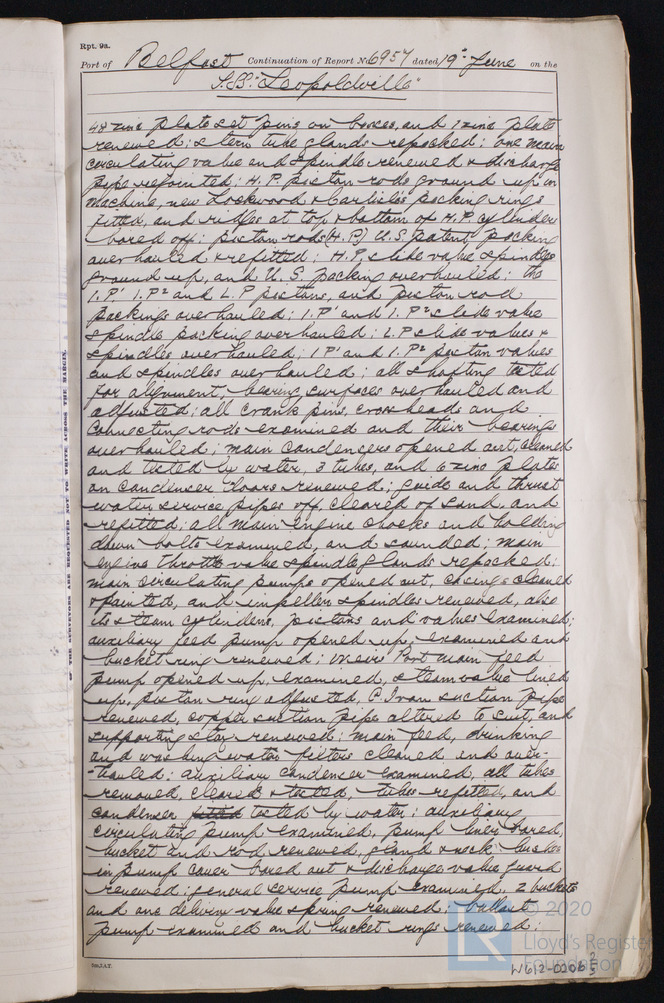 Rpt. 9a.
Port of Belfast Continuation of Report No 6957 dated 19th June on the
S.S. "Leopoldville"
48 zinc plates set pins on boxes, and 1 zinc plate
renewed; stern tube glands repacked; one main
circulating valve and spindle renewed & discharge
pipe rejointed; H.P. piston rods ground up in
machine, new Lockwood & Carlisle's packing rings
fitted, and ridges at top & bottom of H.P. cylinder
bored off; piston rods (H.P.) U.S. patent packing
overhauled & refitted; H.P. slide valve spindles
ground up, and U.S. packing overhauled; the
I.P' I.P² and L.P pistons, and piston rod
packings overhauled; I.P' and I.P² slide valve
spindle packing overhauled; L.P slide valves &
spindles overhauled; I P' and I.P² piston valves
and spindles overhauled; all shafting tested
for alignment, bearing surfaces overhauled and
adjusted; all crank pins, crossheads and
connecting rods examined and their bearings
overhauled; main condensers opened out, cleaned
and tested by water, 3 tubes, and 6 zinc plates
on condenser doors renewed; guide and thrust
water service pipes off, cleared of sand, and
refitted; all main engine chocks and holding
down bolts examined, and sounded; main
engine throttle valve spindle glands repacked;
main circulating pumps opened out, casings cleaned
& painted, and impellers spindles renewed, also
its steam cylinders, pistons and valves examined;
auxiliary feed pump opened up, examined and
bucket ring renewed; Weirs Port main feed
pump opened up, examined, steam valve lined
up, piston ring adjusted, C Iron suction pipe
renewed, copper suction pipe altered to suit, and
supporting stay renewed; main feed, drinking
and washing water filters cleaned and over-
-hauled; auxiliary condenser examined, all tubes
removed, cleared & tested, tubes refitted, and
condenser tested by water; auxiliary
circulating pump examined, pump liner bored,
bucket and rod renewed, gland & neck bushes
in pump cover bored out & discharge valve guard
renewed; general service pump examined, 2 buckets
and one delivery valve spring renewed; ballast
pump examined and bucket rings renewed;
OF THE SURVEYORS ARE REQUESTED NOT TO WRITE ACROSS THE MARGIN.
© 2020
Lloyd's Register
Foundation
W612-0206 2/3